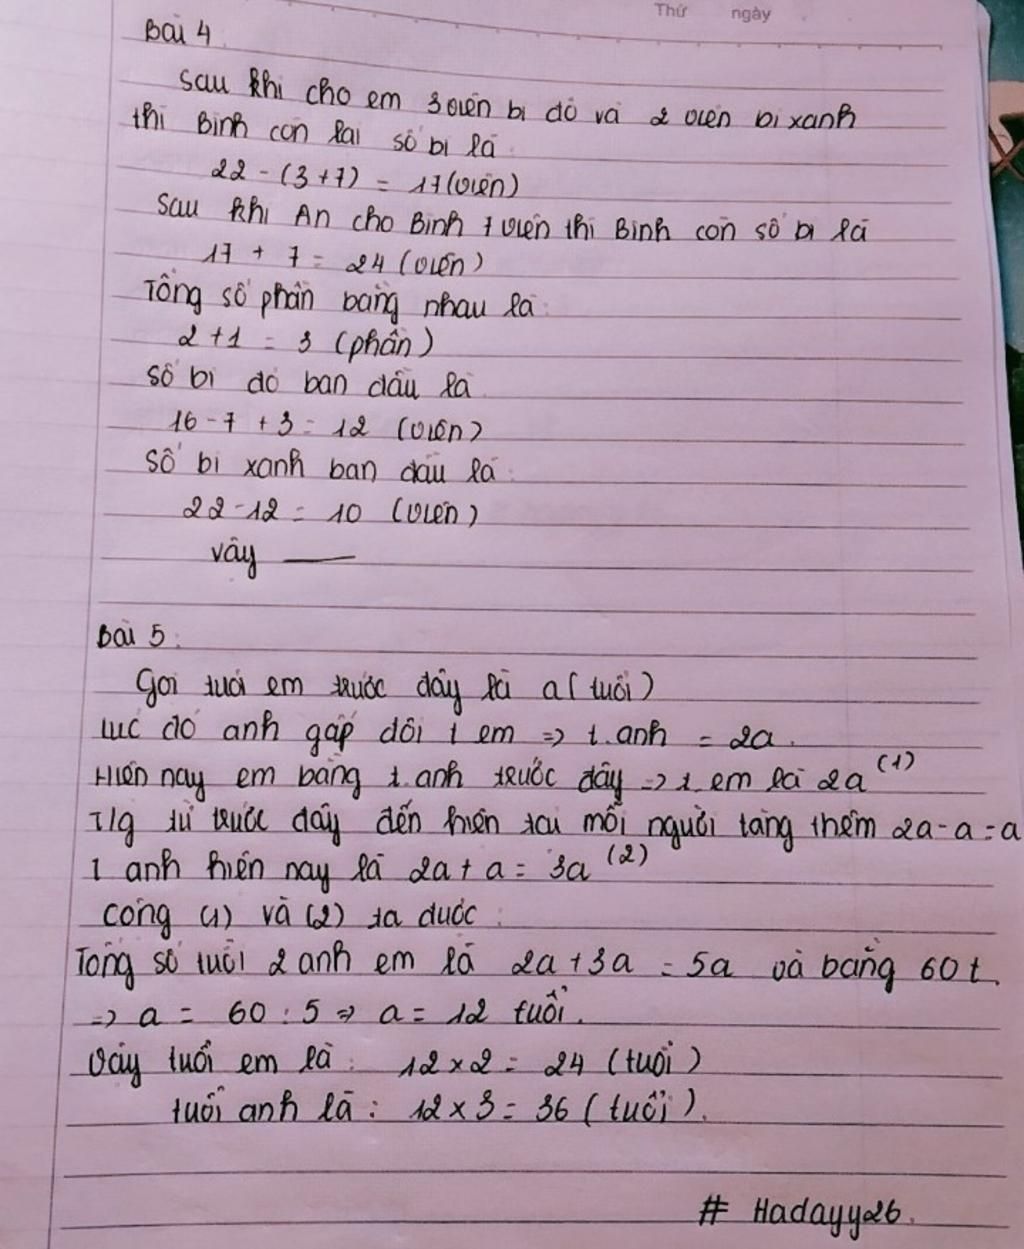 Thứ ngày
Bài 4
Sau khi cho em 3 viên bi đỏ và 2 viên bi xanh
thì Bình còn lại số bi là
22 - (3+7) = 17 (viên)
Sau khi An cho Bình 7 viên thì Bình còn số bi là
17 + 7 = 24 (viên)
Tổng số phần bằng nhau là:
2 + 1 = 3 (phần)
Số bi đỏ ban đầu là
16 - 7 + 3 = 12 (viên)
Số bi xanh ban đầu là:
22 - 12 = 10 (viên)
Vậy —
Bài 5:
Gọi tuổi em trước đây là a (tuổi)
Lúc đó anh gấp đôi t em => t.anh = 2a.
Hiện nay em bằng t.anh trước đây => t.em là 2a (1)
T/g từ trước đây đến hiện tại mỗi người tăng thêm 2a - a = a
T anh hiện nay là 2a + a = 3a (2)
Cộng (1) và (2) ta được:
Tổng số tuổi 2 anh em là 2a + 3a = 5a và bằng 60t.
=> a = 60 : 5 => a = 12 tuổi.
Vậy tuổi em là: 12 x 2 = 24 (tuổi)
tuổi anh là: 12 x 3 = 36 (tuổi).
# Hadayy26.